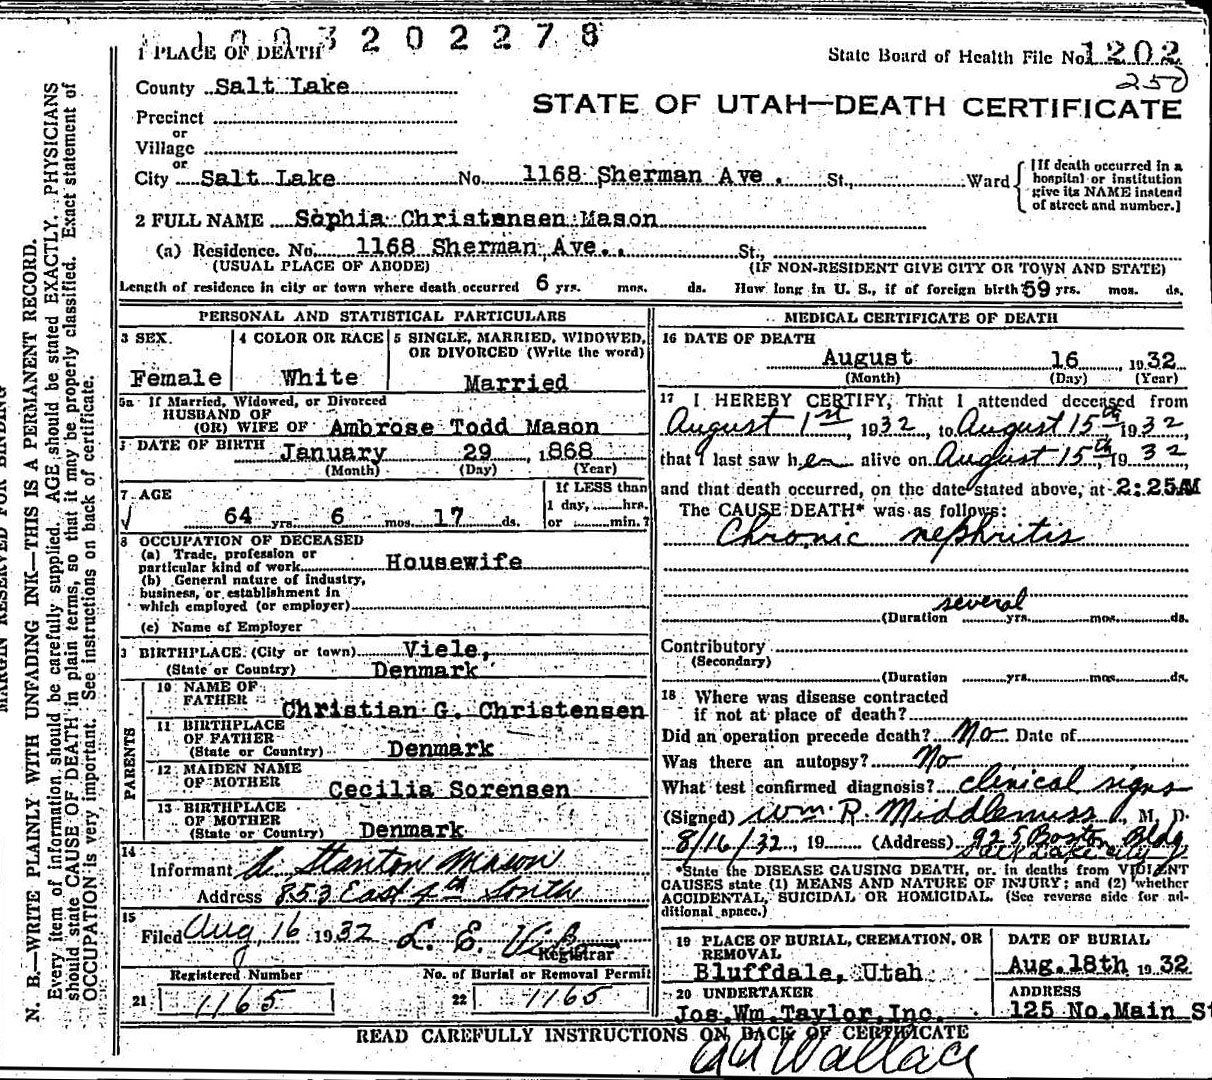 1 0 0 3 2 0 2 2 7 8
1 PLACE OF DEATH
State Board of Health File No. 1202
250
County Salt Lake
STATE OF UTAH—DEATH CERTIFICATE
Precinct
or
Village
or
City Salt Lake No. 1168 Sherman Ave. St., Ward
[If death occurred in a
hospital or institution
give its NAME instead
of street and number.]
2 FULL NAME Sophia Christensen Mason
(a) Residence. No. 1168 Sherman Ave.. St.,
(USUAL PLACE OF ABODE) (IF NON-RESIDENT GIVE CITY OR TOWN AND STATE)
Length of residence in city or town where death occurred 6 yrs. mos. ds. How long in U. S., if of foreign birth? 59 yrs. mos. ds.
PERSONAL AND STATISTICAL PARTICULARS
3 SEX
Female
4 COLOR OR RACE
White
5 SINGLE, MARRIED, WIDOWED,
OR DIVORCED (Write the word)
Married
5a If Married, Widowed, or Divorced
HUSBAND OF
(OR) WIFE OF Ambrose Todd Mason
DATE OF BIRTH January 29, 1868
(Month) (Day) (Year)
7 AGE
64 yrs. 6 mos. 17 ds.
If LESS than
1 day, hrs.
or min.?
8 OCCUPATION OF DECEASED
(a) Trade, profession or
particular kind of work Housewife
(b) General nature of industry,
business, or establishment in
which employed (or employer)
(c) Name of Employer
BIRTHPLACE (City or town) Viele,
(State or Country) Denmark
PARENTS
10 NAME OF
FATHER Christian G. Christensen
11 BIRTHPLACE
OF FATHER
(State or Country) Denmark
12 MAIDEN NAME
OF MOTHER Cecilia Sorensen
13 BIRTHPLACE
OF MOTHER
(State or Country) Denmark
14
Informant A. Stanton Mason
Address 853 East 4th South
15
Filed Aug, 16 1932 L. E.
Registrar
Registered Number
21 1165
No. of Burial or Removal Permit
22 1165
MEDICAL CERTIFICATE OF DEATH
16 DATE OF DEATH
August 16 1932
(Month) (Day) (Year)
17 I HEREBY CERTIFY, That I attended deceased from
August 1st, 1932, to August 15th 1932,
that I last saw her alive on August 15th, 1932,
and that death occurred, on the date stated above, at 2:25AM
The CAUSE DEATH* was as follows:
Chronic nephritis
several
(Duration yrs. mos. ds.
Contributory
(Secondary)
(Duration yrs. mos. ds.
18 Where was disease contracted
if not at place of death?
Did an operation precede death? No Date of
Was there an autopsy? No
What test confirmed diagnosis? clinical signs
(Signed) Wm. R. Middlemiss, M. D.
8/16/32, 19 (Address) 925 Boston Bldg
Salt Lake City
*State the DISEASE CAUSING DEATH, or in deaths from VIOLENT
CAUSES state (1) MEANS AND NATURE OF INJURY; and (2) whether
ACCIDENTAL, SUICIDAL OR HOMICIDAL. (See reverse side for ad-
ditional space.)
19 PLACE OF BURIAL, CREMATION, OR
REMOVAL
Bluffdale, Utah
DATE OF BURIAL
Aug. 18th 1932
20 UNDERTAKER
Jos. Wm. Taylor, Inc.
ADDRESS
125 No. Main St
READ CAREFULLY INSTRUCTIONS ON BACK OF CERTIFICATE
Wallace
MARGIN RESERVED FOR BINDING
N. B.—WRITE PLAINLY WITH UNFADING INK—THIS IS A PERMANENT RECORD.
Every item of information should be carefully supplied. AGE should be stated EXACTLY. PHYSICIANS
should state CAUSE OF DEATH in plain terms, so that it may be properly classified. Exact statement of
OCCUPATION is very important. See instructions on back of certificate.